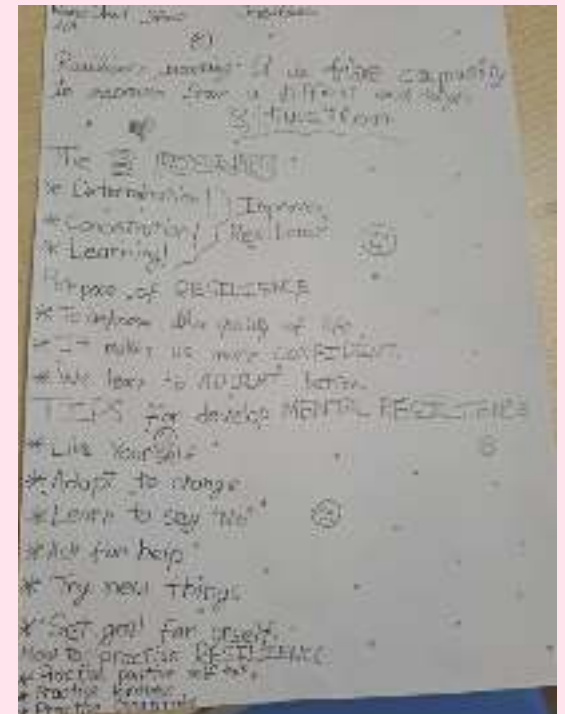 Resilience meaning: It is the capacity
to recover from a different and
situation
The RESILIENCE
* Determination!
* Concentration! Improves
* Learning! Resilience
Purpose of RESILIENCE
* To improve the quality of life.
* It makes us more CONFIDENT.
* We learn to ADJUST better.
TIPS for develop MENTAL RESILIENCE
* Like Yourself
* Adapt to change
* Learn to say "No"
* Ask for help
* Try new things
* Set goal for urself.
How to practise RESILIENCE
* Practise positive self talk.
* Practise kindness
* Practise